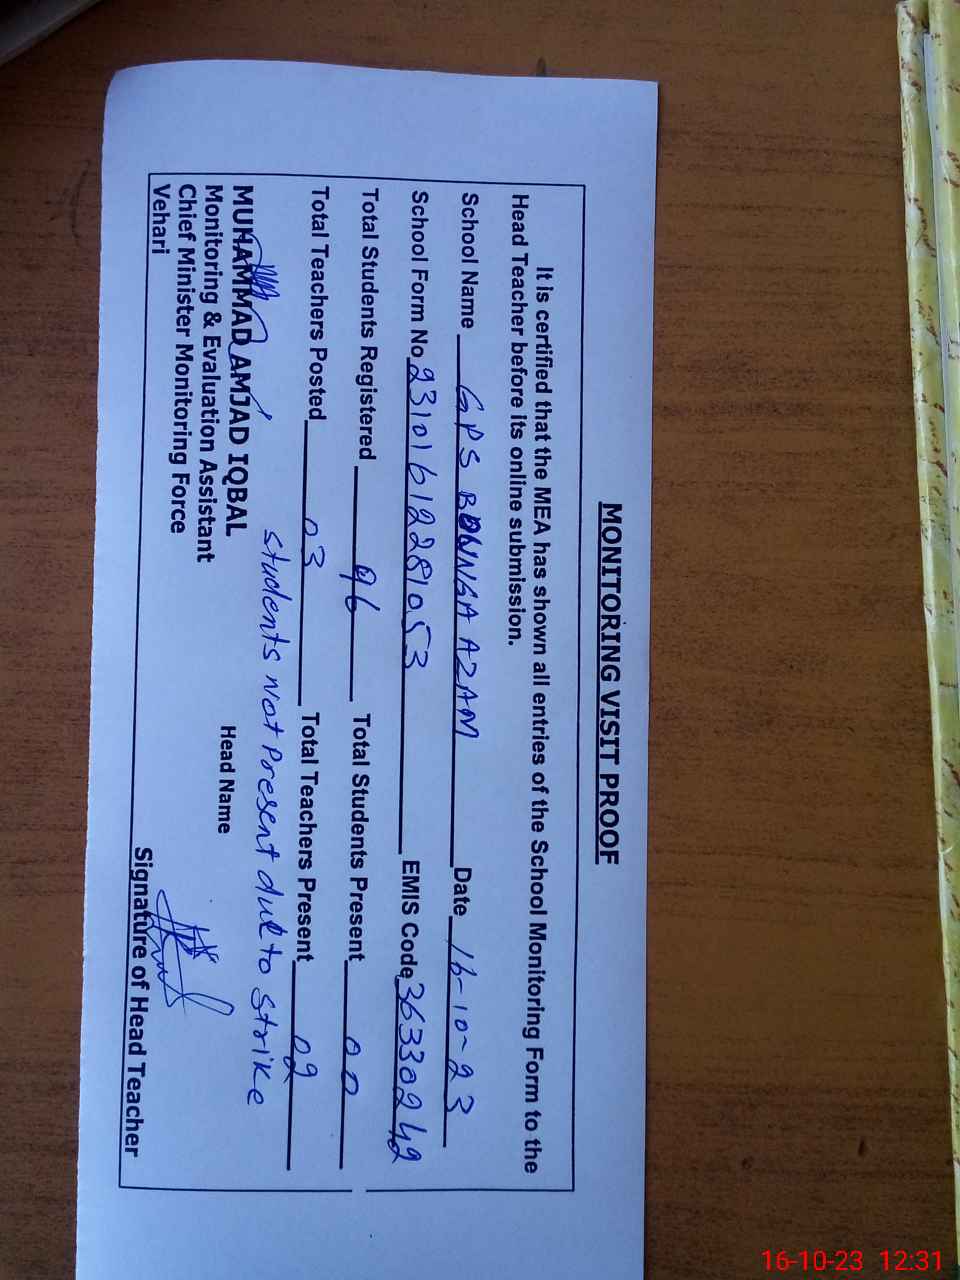 MONITORING VISIT PROOF
It is certified that the MEA has shown all entries of the School Monitoring Form to the
Head Teacher before its online submission.
School Name GPS BUNNGA AZAM Date 16-10-23
School Form No 231016122281053 EMIS Code 36330242
Total Students Registered 96 Total Students Present 00
Total Teachers Posted 03 Total Teachers Present 02
students not present due to strike
MUHAMMAD AMJAD IQBAL
Monitoring & Evaluation Assistant
Chief Minister Monitoring Force
Vehari
Head Name
Signature of Head Teacher
16-10-23 12:31